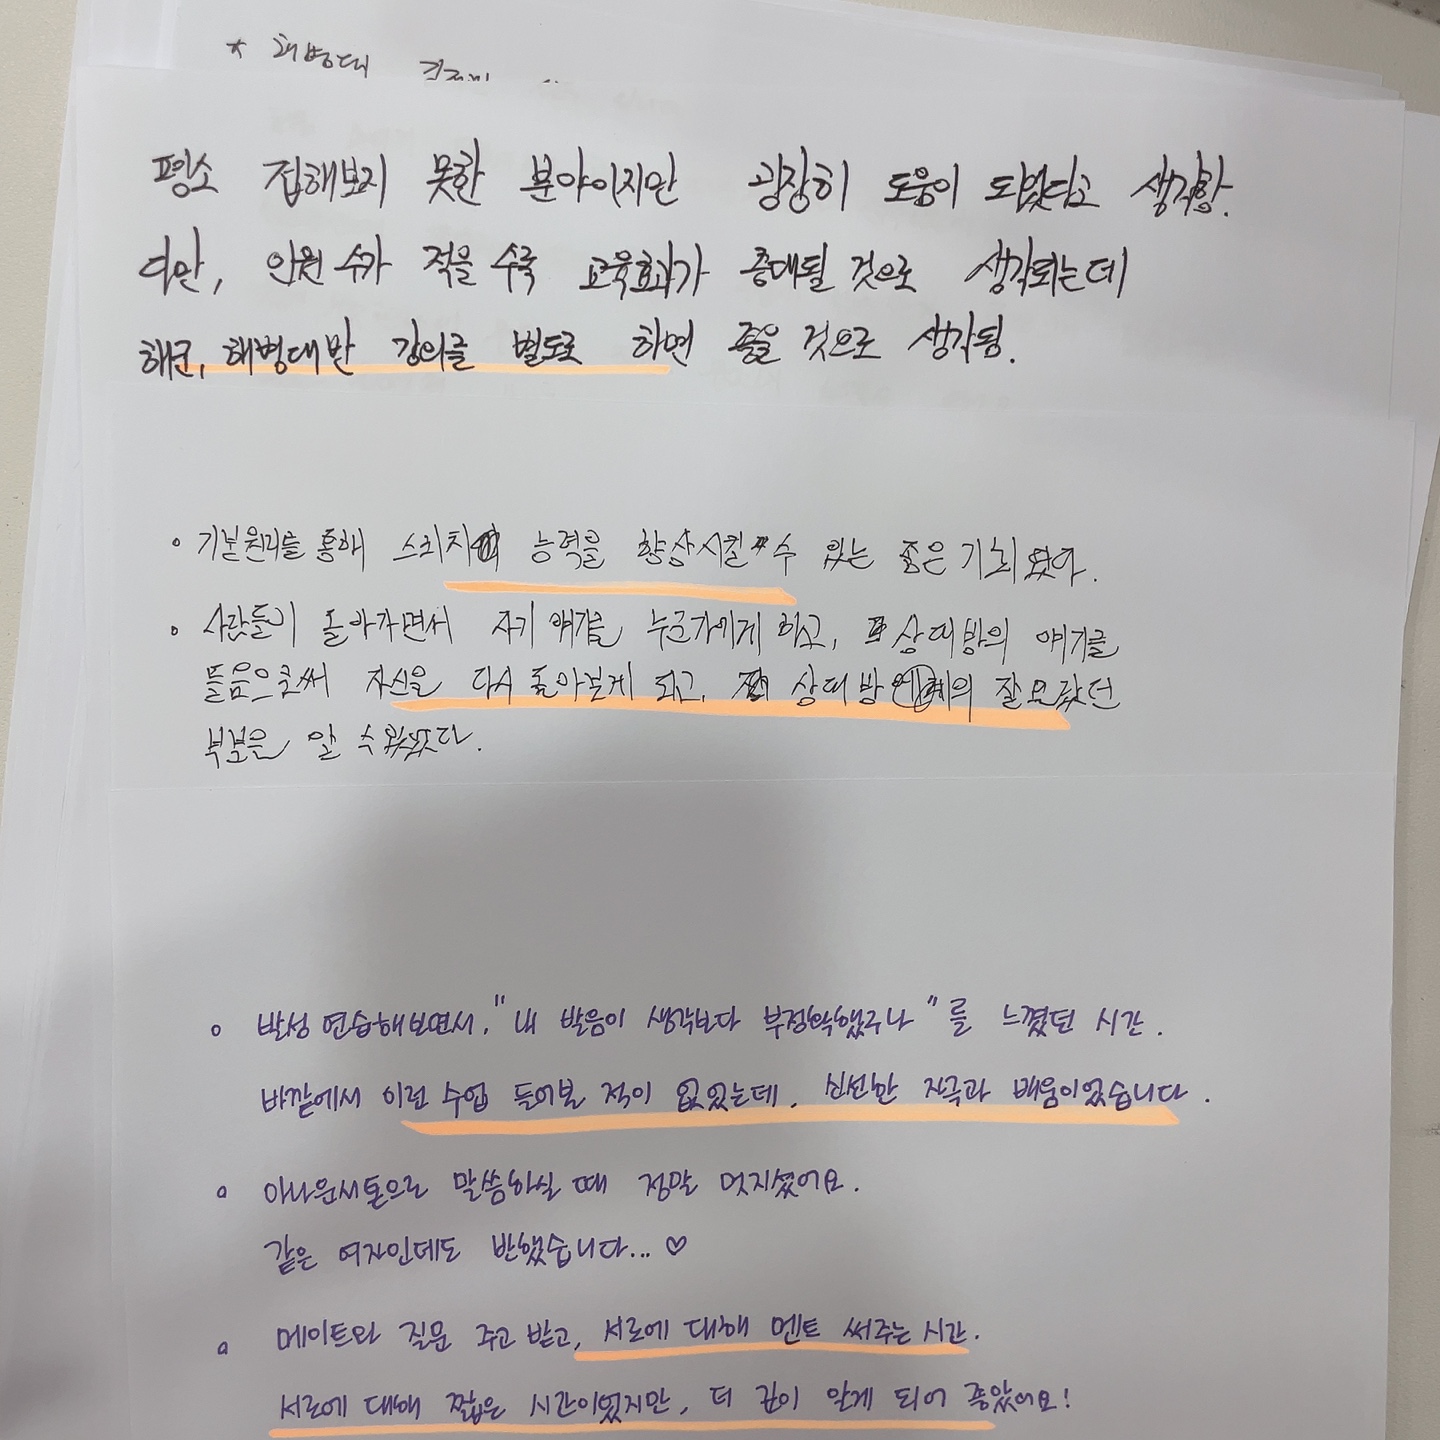 * 해병대
평소 접해보지 못한 분야이지만 굉장히 도움이 되었다고 생각함.
다만, 인원 수가 적을 수록 교육효과가 증대될 것으로 생각되는데
해군, 해병대만 강의를 별도로 하면 좋을 것으로 생각됨.
• 기본원리를 통해 스피치 능력을 향상시킬 수 있는 좋은 기회였다.
• 사람들이 돌아가면서 자기 얘기를 누군가에게 하고, 상대방의 얘기를
들음으로써 자신을 다시 돌아보게 되고, 상대방의 잘 모랐던
부분은 알 수 있었다.
○ 발성 연습해보면서, "내 발음이 생각보다 부정확했구나" 를 느꼈던 시간.
바깥에서 이런 수업 들어볼 적이 없었는데, 신선한 자극과 배움이었습니다.
○ 아나운서톤으로 말씀하실 때 정말 멋지셨어요.
같은 여자인데도 반했습니다... ♡
○ 메이트와 질문 주고 받고, 서로에 대해 멘트 써주는 시간.
서로에 대해 짧은 시간이었지만, 더 깊이 알게 되어 좋았어요!